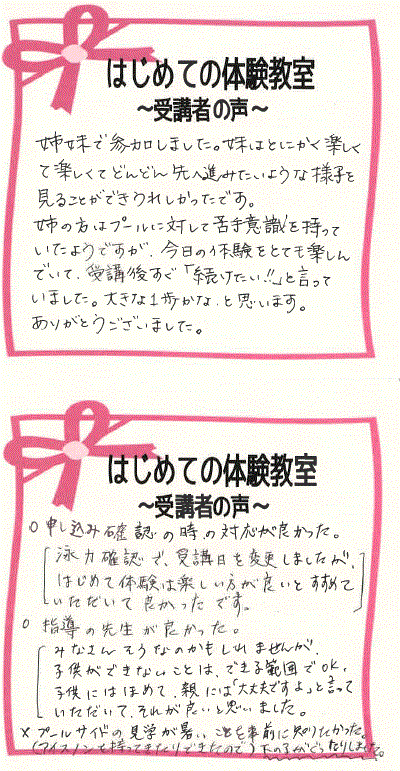 はじめての体験教室
～受講者の声～
姉妹で参加しました。妹はとにかく楽しく
て楽しくてどんどん先へ進みたいような様子を
見ることができうれしかったです。
姉の方はプールに対して苦手意識を持って
いたようですが、今日の体験をとても楽しん
でいて、受講後すぐ「続けたい!!」と言って
いました。大きな1歩かな、と思います。
ありがとうございました。
はじめての体験教室
～受講者の声～
○申し込み確認の時の対応が良かった。
泳力確認で、受講日を変更しましたが、
はじめて体験は楽しい方が良いとすすめて
いただいて良かったです。
○ 指導の先生が良かった。
みなさんそうなのかもしれませんが、
子供ができないことは、できる範囲でOK、
子供にはほめて、親には「大丈夫ですよ」と言って
いただいて、それが良いと思いました。
×プールサイドの見学が暑いことを事前に知りたかった。
(アイスノンを持ってきたりできたので)下の子がぐったりしました。